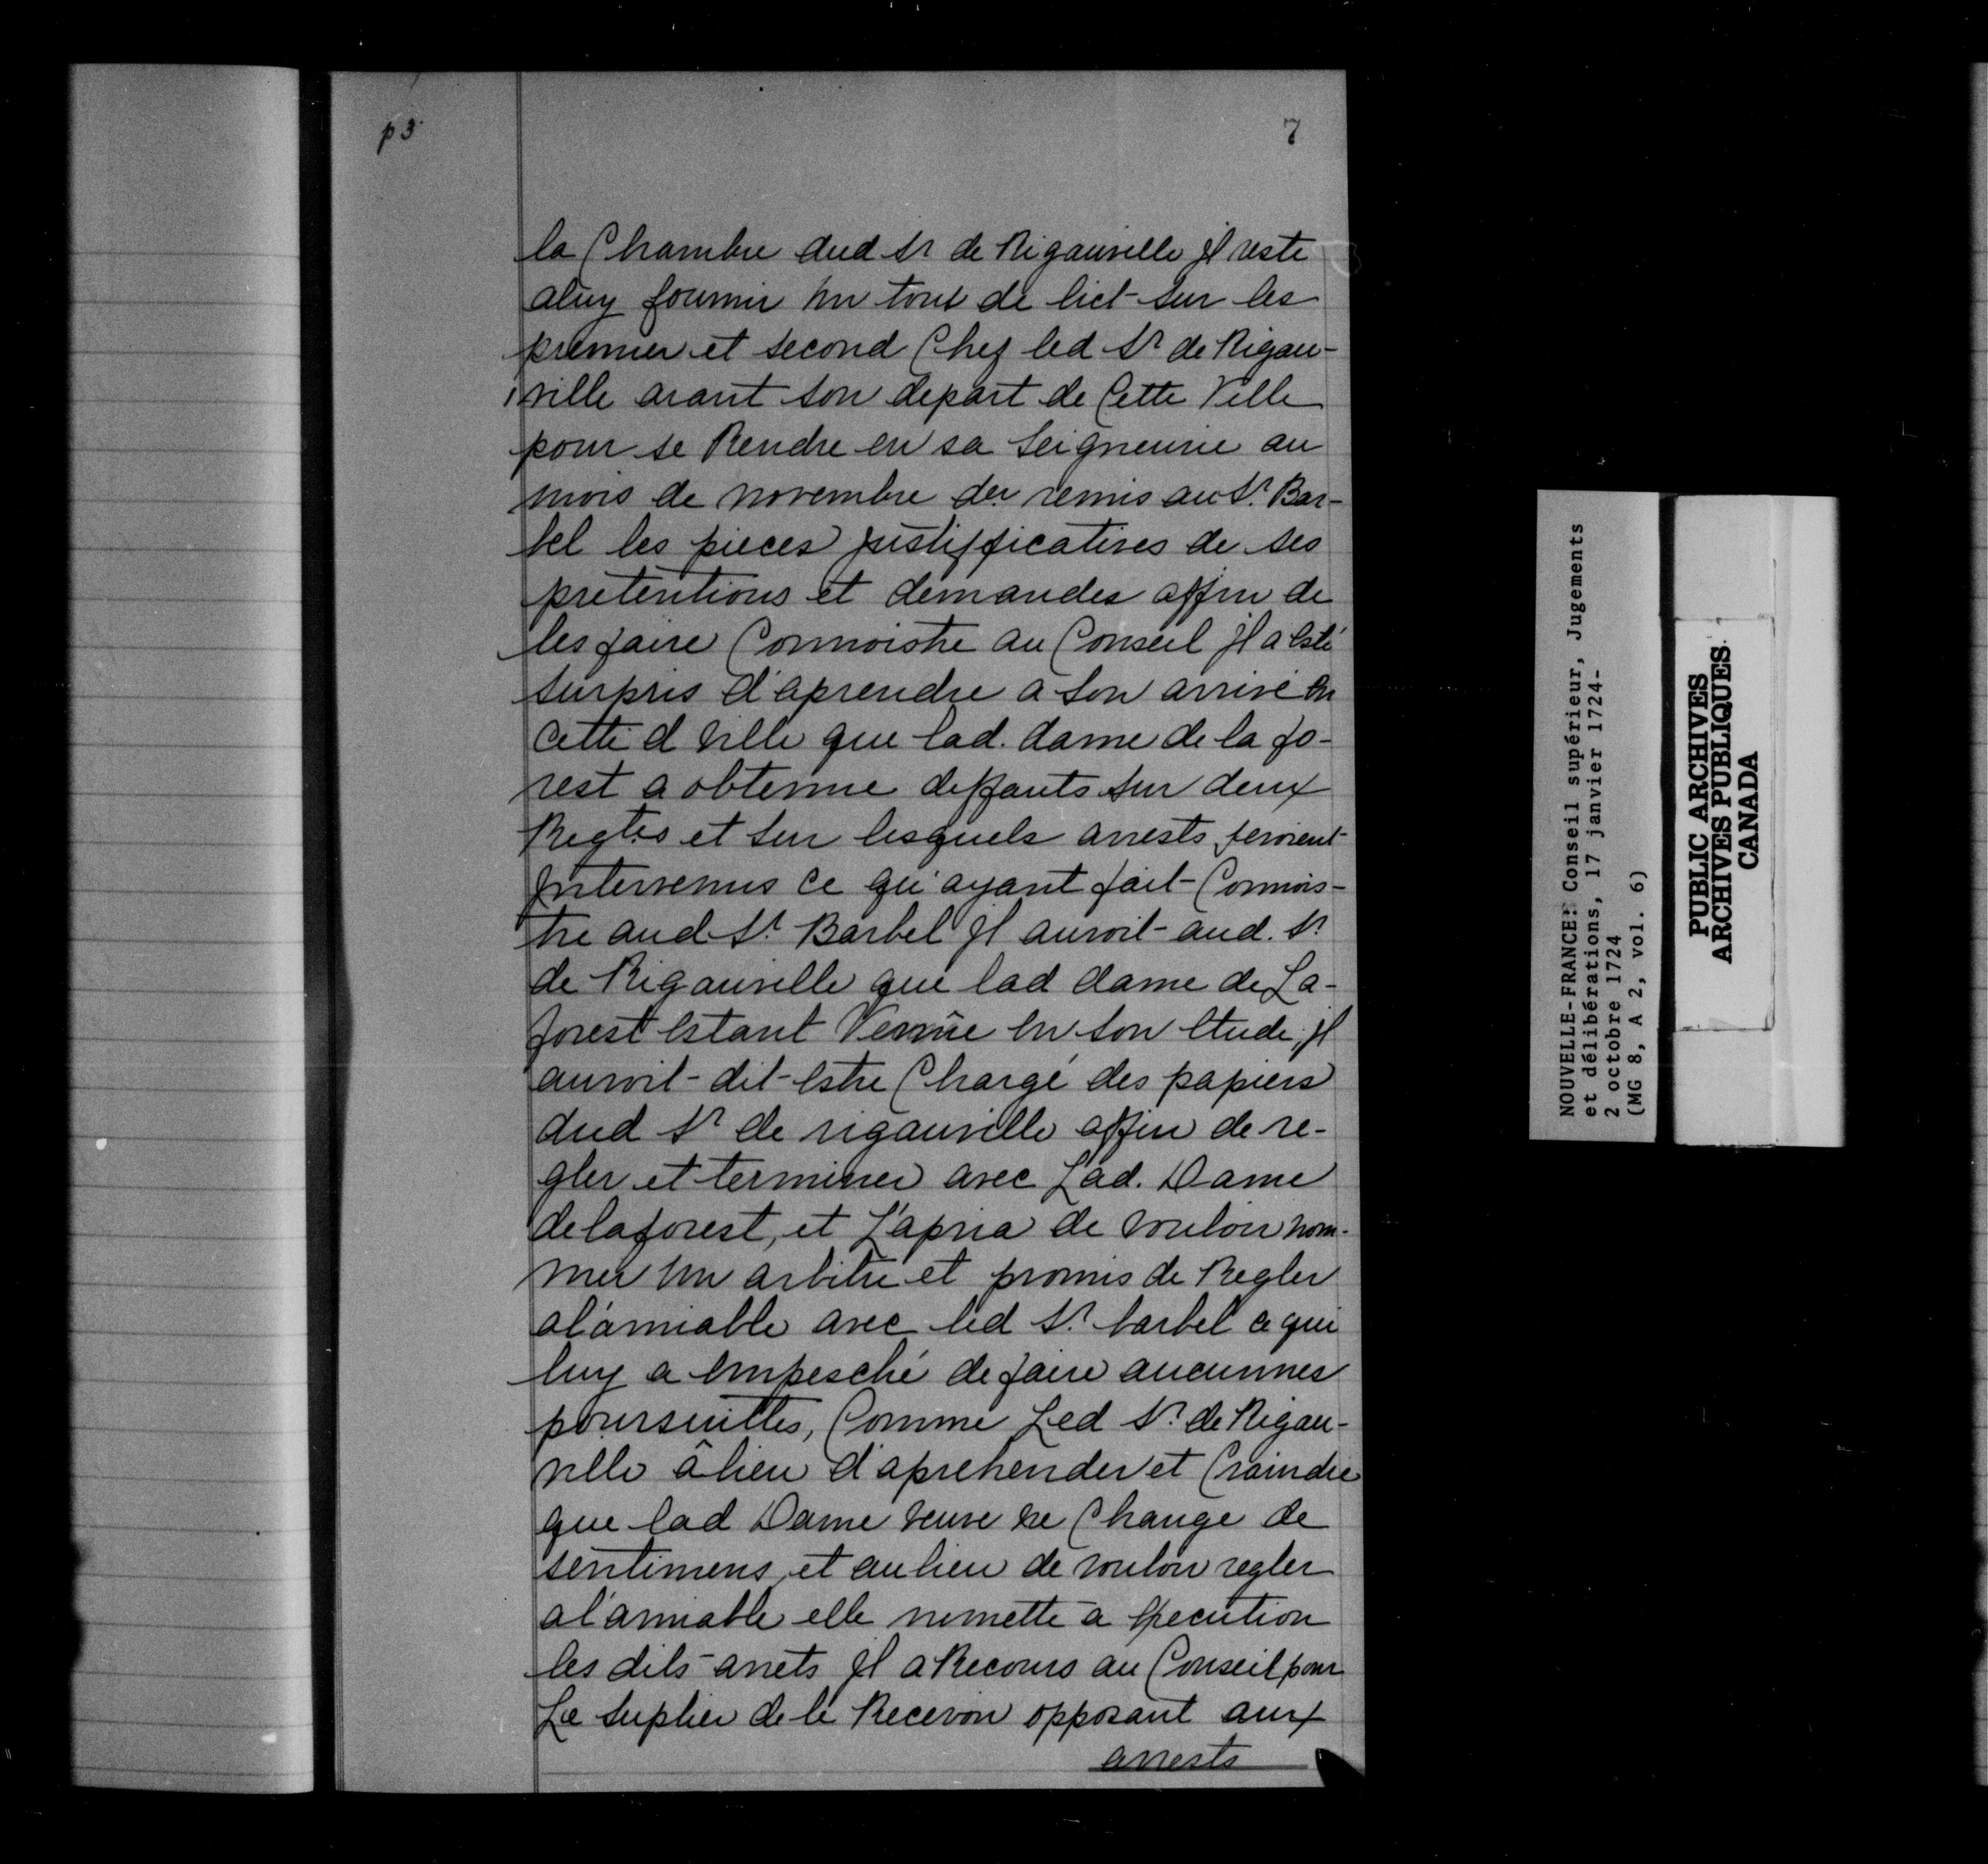 p 3
7
la Chambre dud Sr de Rigauville Jl reste
aluy fournir un tour de lict sur les
premier et second Chez led Sr de Rigau-
ville avant son depart de Cette Ville
pour se Rendre en sa Seigneurie au
mois de novembre der remis au Sr. Bar-
bel les pieces justifficatives de ses
pretentions et demandes affin de
les faire Connoistre au Conseil Jl a Esté
surpris d'aprendre a son arrivé En
Cette d Ville que lad. dame de la fo-
rest a obtenue deffauts sur deux
Regtes et sur lesquels arrests seroient
Jntervenus Ce qu'ayant fait Connois-
tre aud Sr. Barbel Jl auroit aud. Sr.
de Rigauville que lad dame de La-
forest Estant Venüe En son Etude, Jl
auroit dit Estre Chargé des papiers
dud Sr de rigauville affin de re-
gler et terminer avec Lad. Dame
delaforest, et L'apria de vouloir nom-
mer un arbitre et promis de Regler
al'amiable avec led Sr. barbel ce qui
luy a Empesché de faire aucunnes
poursuittes, Comme Led Sr. de Rigau-
ville â lieu d'aprehender et Craindre
que lad Dame veuve ne Change de
sentimens, et au lieu de vouloir regler
a l'amiable elle nemette a Execution
les dits arrets Jl a Recours au Conseil pour
Le Suplier de le Recevoir opposant aux
arrests
NOUVELLE-FRANCE: Conseil supérieur, Jugements
et délibérations, 17 janvier 1724-
2 octobre 1724
(MG 8, A 2, vol. 6)
PUBLIC ARCHIVES
ARCHIVES PUBLIQUES
CANADA